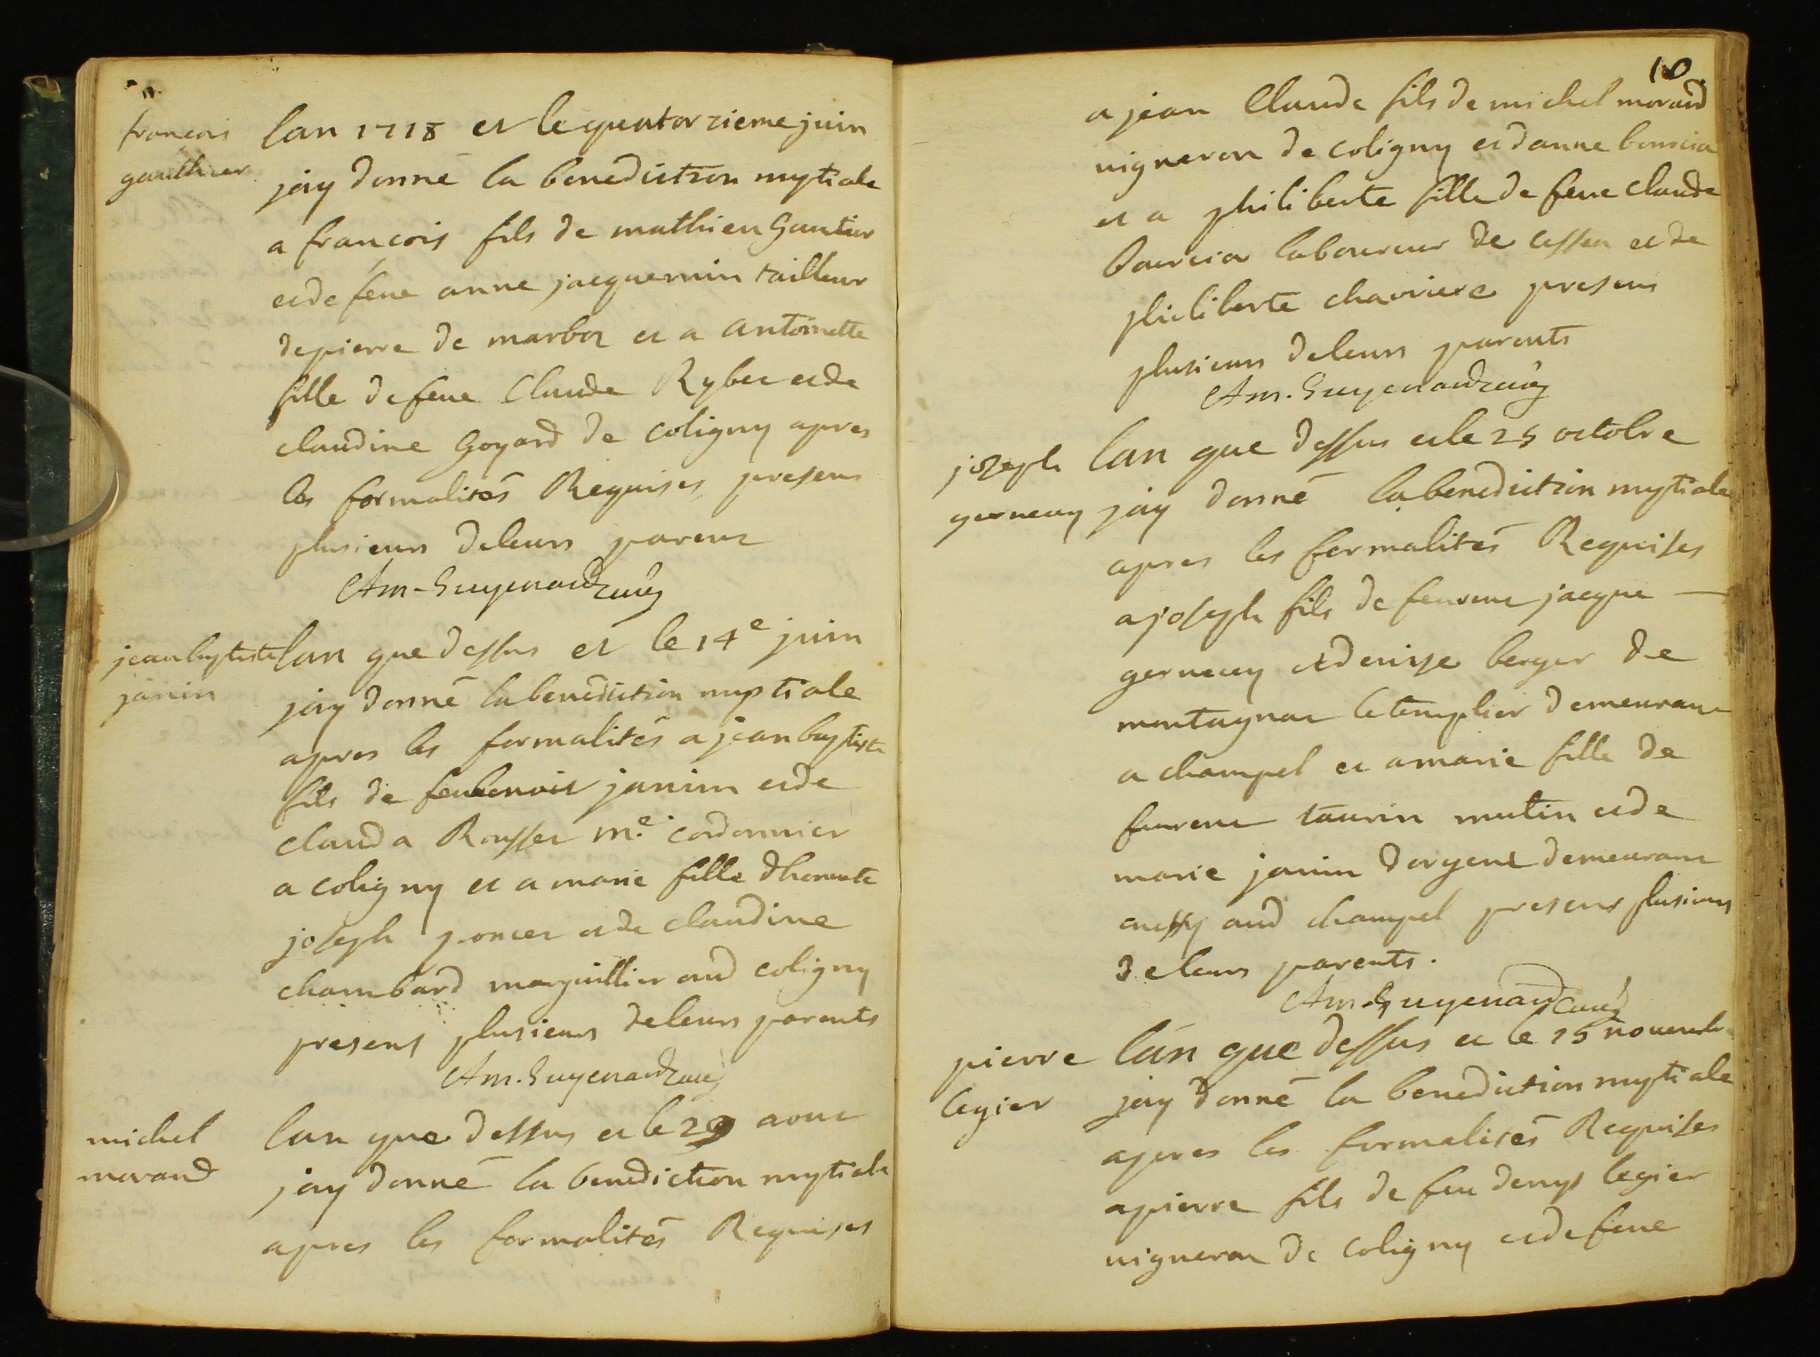 françois
gauthier
lan 1718 et le quatorzieme juin
jay donné la benediction nuptiale
a francois fils de mathieu Gautier
et de feue anne jacquemin tailleur
de pierre de marboz et a antoinette
fille de feue Claude Rybet et de
claudine Goyard de coligny apres
les formalités Requises presens
plusieurs de leurs parens
Am. Guyenard curé
jean baptiste
janin
lan que dessus et le 14e juin
jay donné la benediction nuptiale
apres les formalités a jean baptiste
fils de feu benoit janin et de
clauda Rousset me. cordonnier
a coligny et a marie fille dhonnete
joseph poncet et de claudine
chambard marguillier aud coligny
presens plusieurs de leurs parents
Am. Guyenard curé
michel
morand
lan que dessus et le 29 aout
jay donné la benediction nuptiale
apres les formalités Requises
10
a jean Claude fils de michel morand
vigneron de coligny et danne
et a philiberte fille de feue claude
laboureur de et de
philiberte presens
plusieurs de leurs parents
Am. Guyenard curé
jozeph
gerneay
lan que dessus et le 25 octobre
jay donné la benediction nuptiale
apres les formalités Requises
a joseph fils de jacque
et denise berger de
montagnat le templier demeurant
a champel et a marie fille de
taurin mutin et de
marie janin demeurant
aussy aud champel presens plusieurs
de leurs parents.
Am. Guyenard curé
pierre
legier
lan que dessus et le 25 novembre
jay donné la benediction nuptiale
apres les formalités Requises
a pierre fils de feu denys legier
vigneron de coligny et de feue